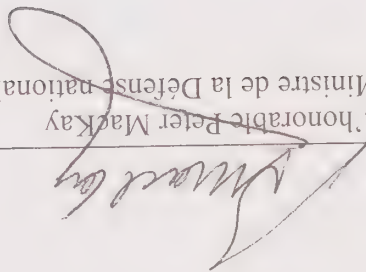 L'honorable Peter MacKay
Ministre de la Défense nationale